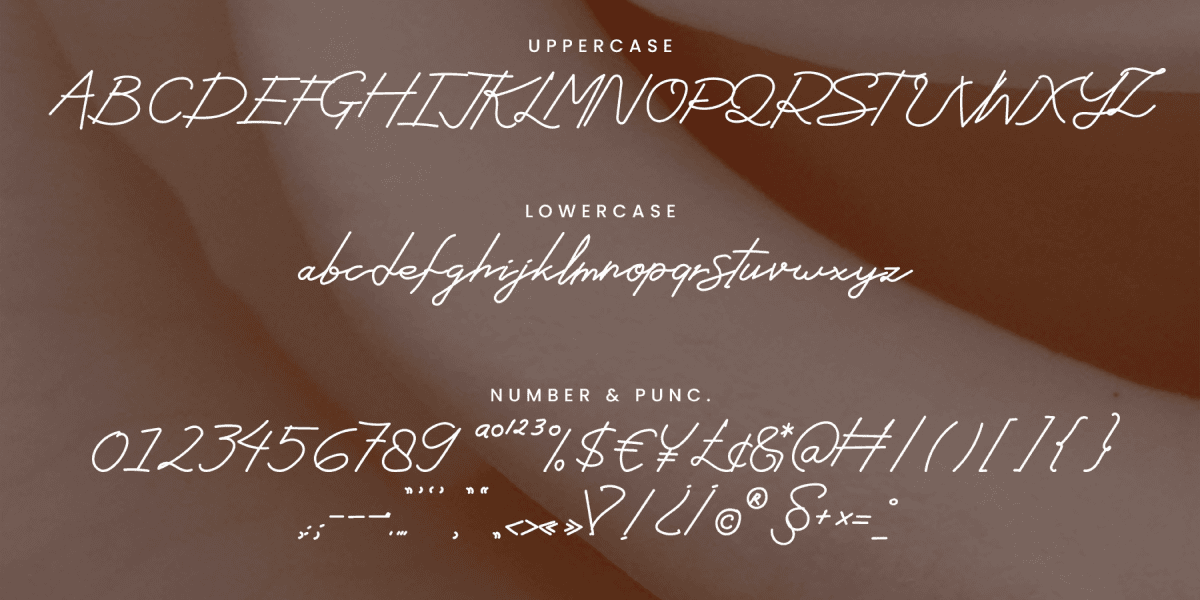 UPPERCASE
ABCDEFGHIJKLMNOPQRSTUVWXYZ
LOWERCASE
abcdefghijklmnopqrstuvwxyz
NUMBER & PUNC.
0123456789 ao1230% $€¥£¢&*@#/()[]{}
<>«»?!¿¡©®§+×=_°